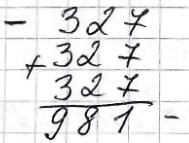 - 327
+ 327
327
981 -